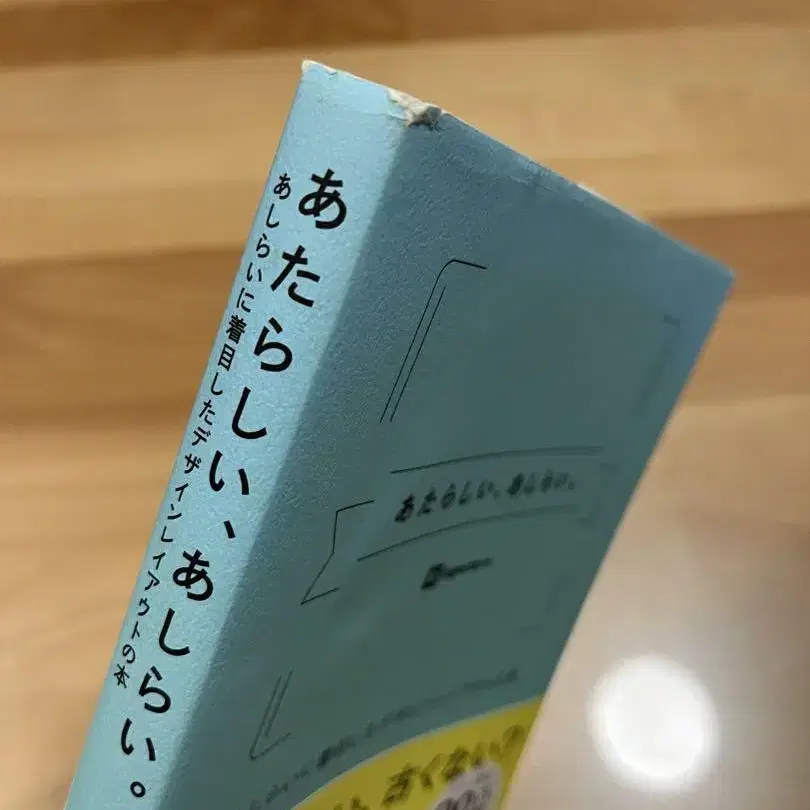 あたらしい、あしらい。
あしらいに着目したデザインレイアウトの本
あたらしい、あしらい。
古くない?